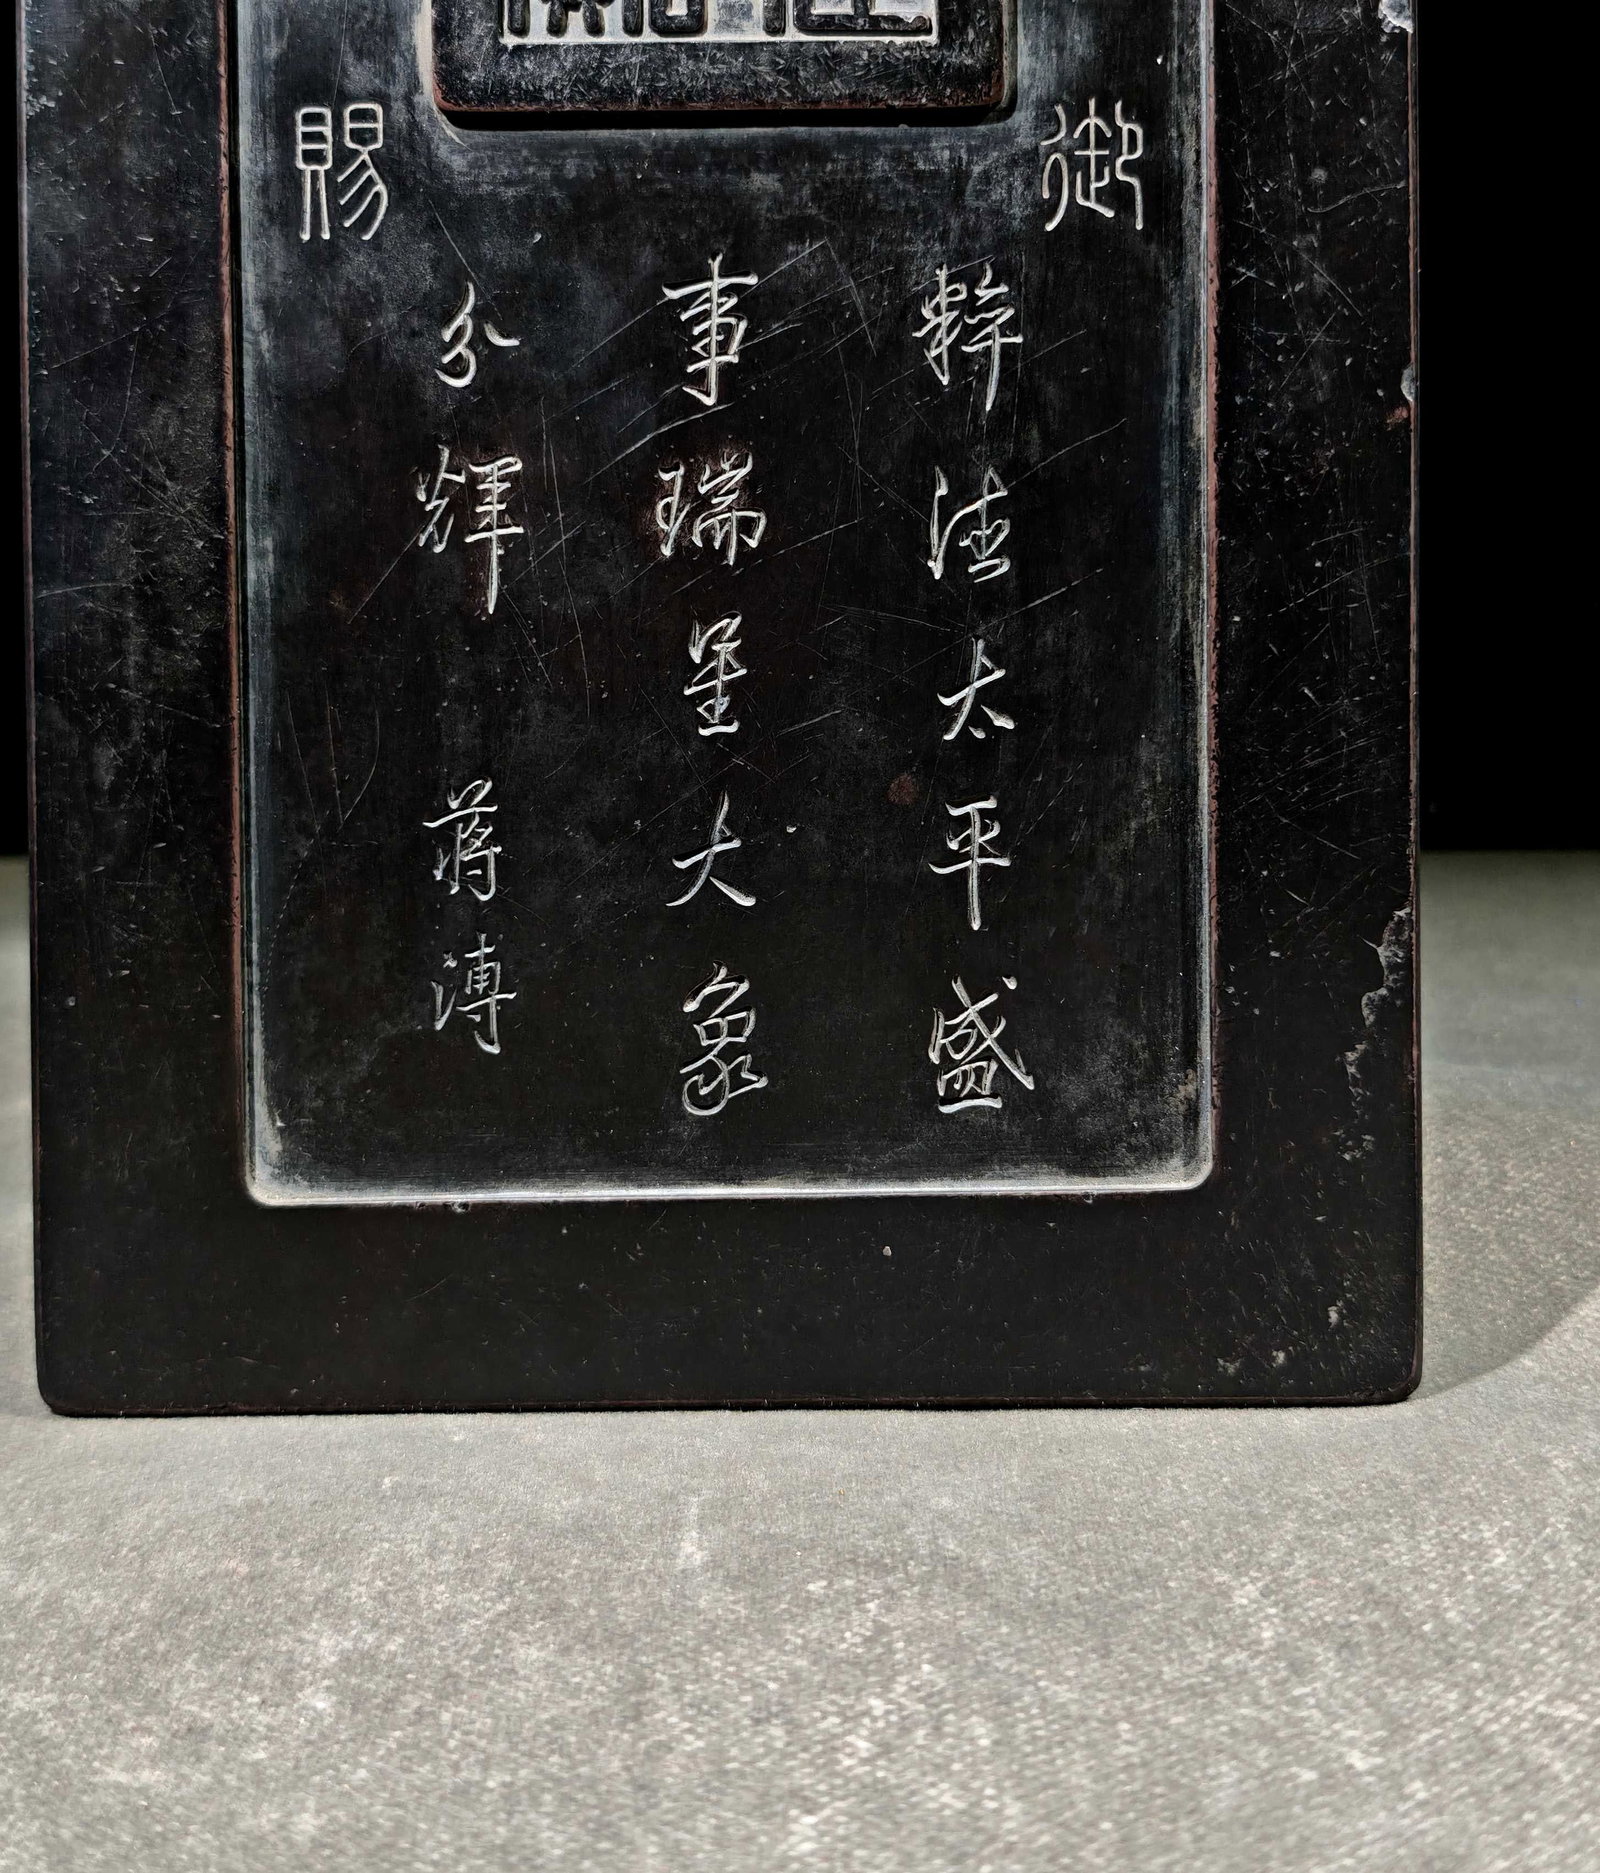 御賜
粹太平盛
事瑞呈大象
分輝 蔣溥